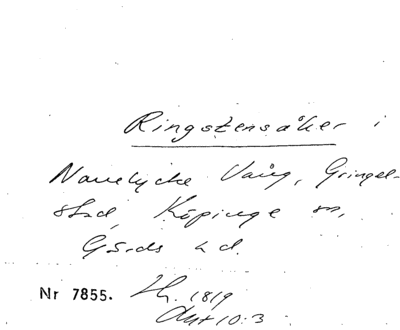 Ringstensåker i
Nanelycke Vång, Gringel-
stad, Köpinge sn,
Gärds hd.
Nr 7855. Lh. 1819
Akt 10:3